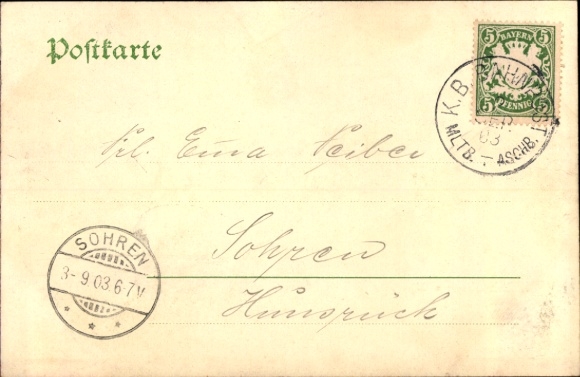 Postkarte
5 BAYERN 5
5 PFENNIG 5
K.B. BAHNPOST
03
MLTB. - ASCHB.
Frl. Erna Reiber
Sohren
Hunsrück
SOHREN
3-9.03.6-7V